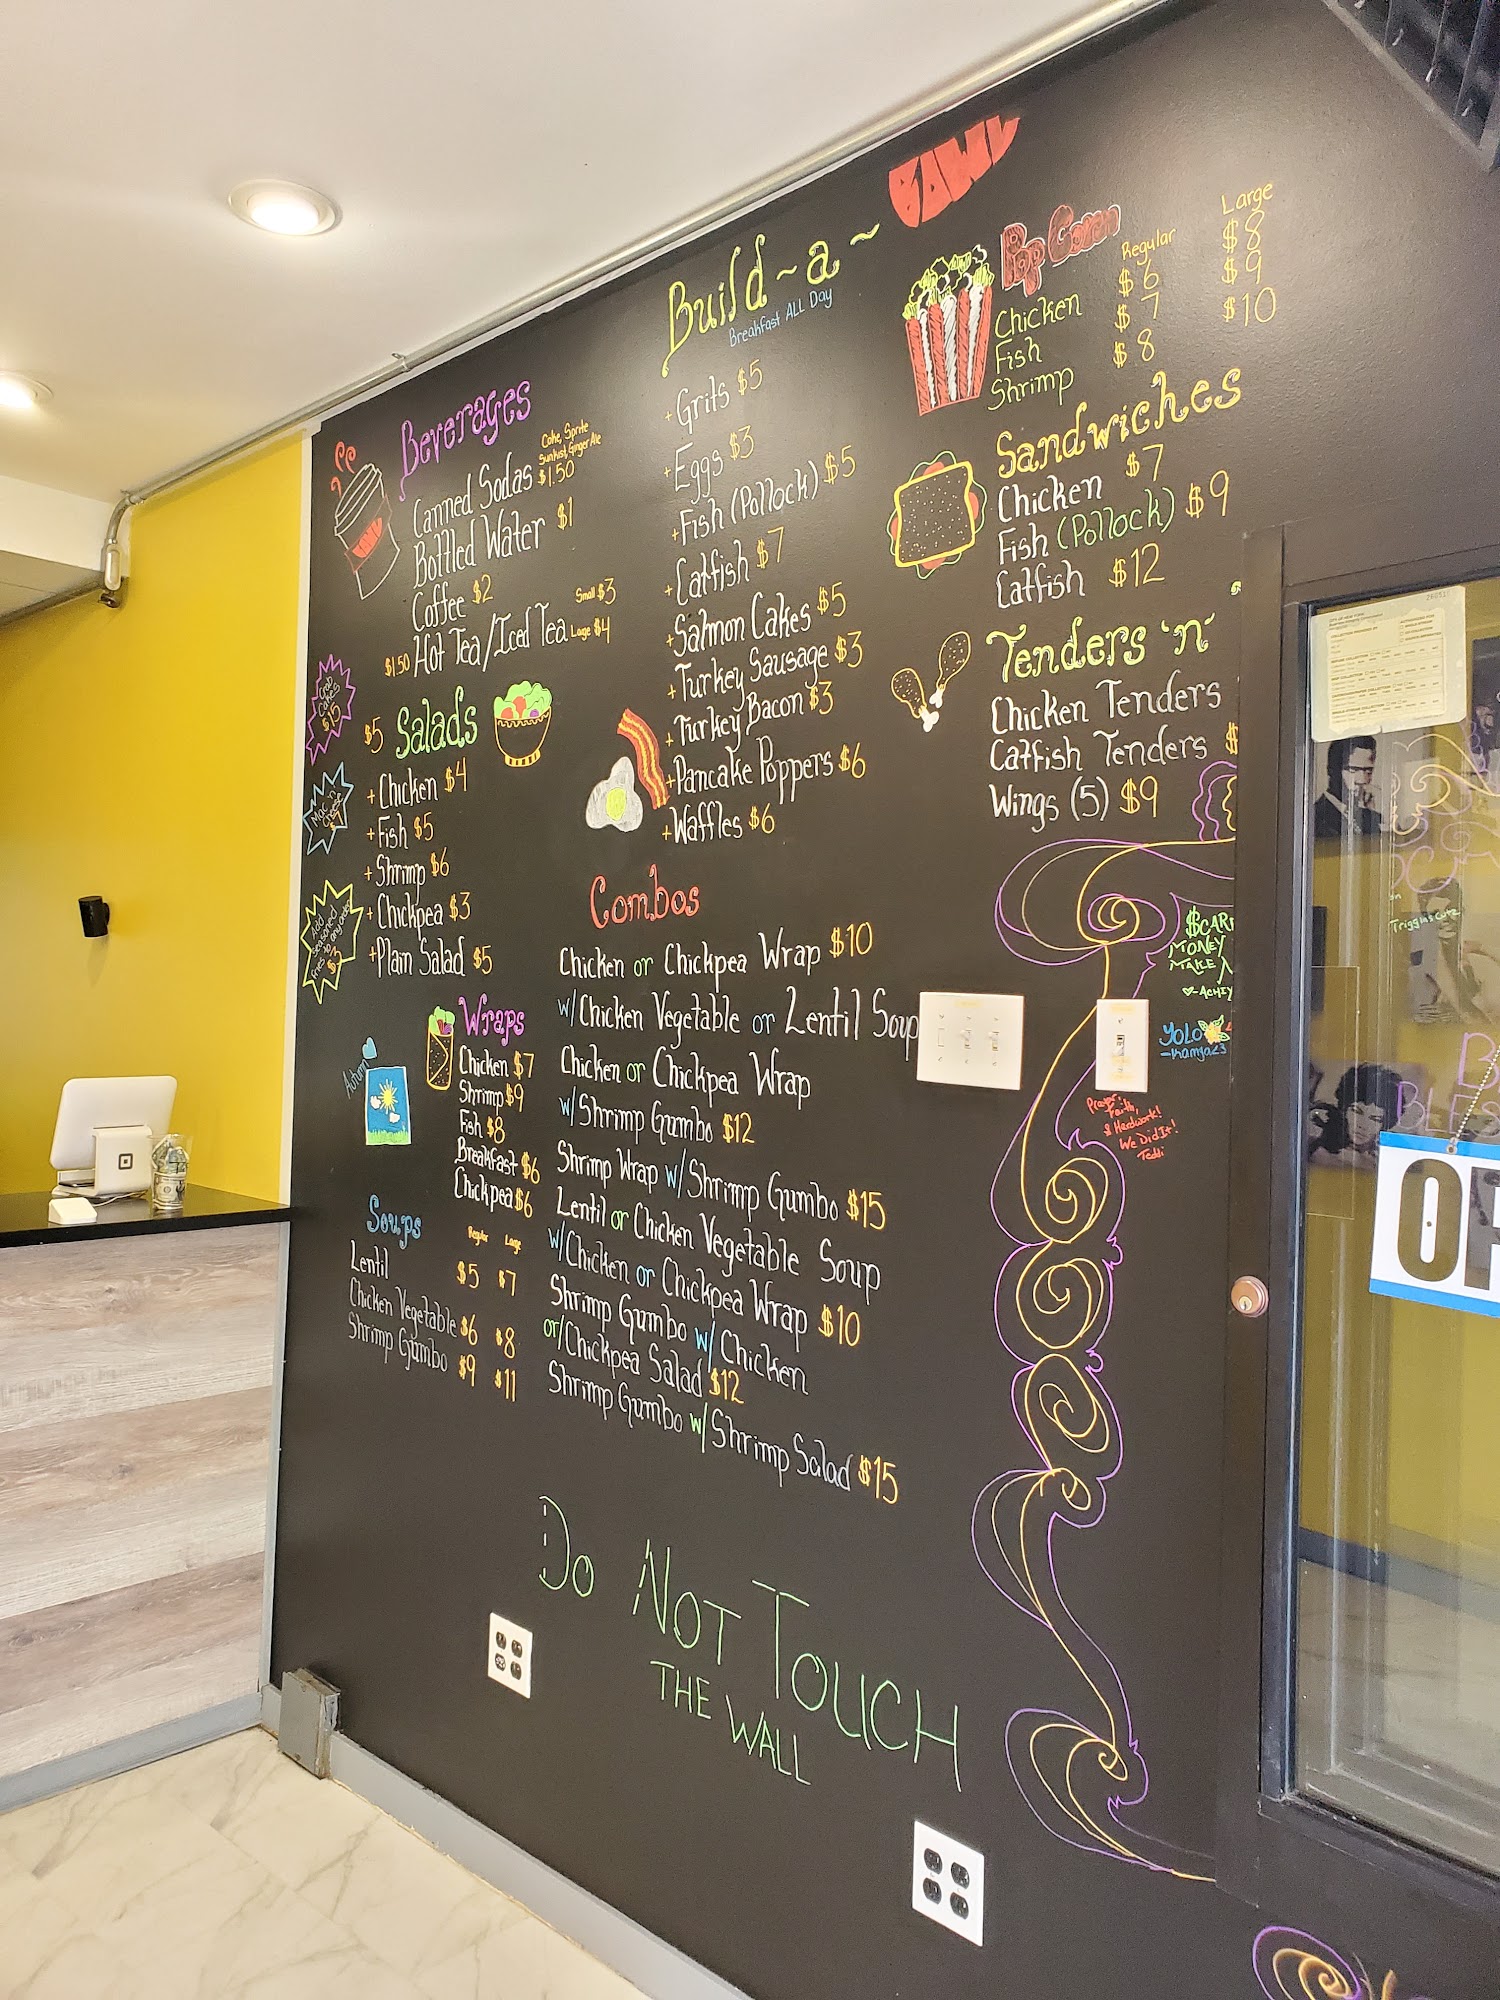 Beverages
Canned Sodas $1.50
Coke, Sprite
Sunkist, Ginger Ale
Bottled Water $1
Coffee $2
$1.50 Hot Tea/Iced Tea
Small $3
Lage $4
Crab
Cakes
$15
Mac 'n
Chese
$7
Add
Seasoned
fries to any order
$3
$5 Salads
+ Chicken $4
+ Fish $5
+ Shrimp $6
+ Chickpea $3
+ Plain Salad $5
Autumn
Wraps
Chicken $7
Shrimp $9
Fish $8
Breakfast $6
Chickpea $6
Soups
Regular Lage
Lentil $5 $7
Chicken Vegetable $6 $8
Shrimp Gumbo $9 $11
Build~a~
BOWL
Breakfast ALL Day
+ Grits $5
+ Eggs $3
+ Fish (Pollock) $5
+ Catfish $7
+ Salmon Cakes $5
+ Turkey Sausage $3
+ Turkey Bacon $3
+ Pancake Poppers $6
+ Waffles $6
Combos
Chicken or Chickpea Wrap $10
w/Chicken Vegetable or Lentil Soup
Chicken or Chickpea Wrap
w/Shrimp Gumbo $12
Shrimp Wrap w/Shrimp Gumbo $15
Lentil or Chicken Vegetable Soup
w/Chicken or Chickpea Wrap $10
Shrimp Gumbo w/Chicken
or/Chickpea Salad $12
Shrimp Gumbo w/Shrimp Salad $15
Pop Corn
Regular Large
Chicken $6 $8
Fish $7 $9
Shrimp $8 $10
Sandwiches
Chicken $7
Fish (Pollock) $9
Catfish $12
Tenders 'n'
Chicken Tenders
Catfish Tenders $
Wings (5) $9
$CAR
MONEY
MAKE
-ACHIY
YOLO
-Kamya23
Prayer,
Faith,
& Hardwork!
We Did It!
Teddi
DO NOT TOUCH
THE WALL
BLES
OP